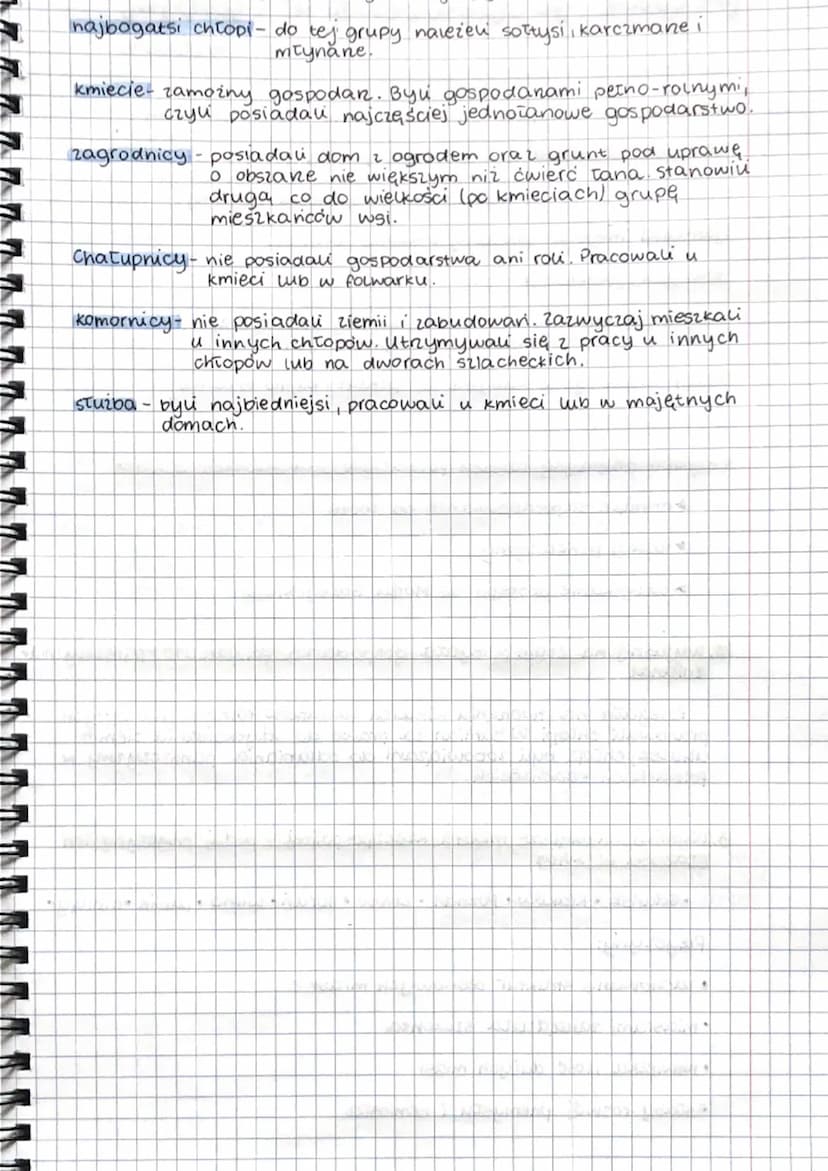 najbogatsi chłopi - do tej grupy należeli sołtysi, karczmarze i
młynarze.
kmiecie - zamożny gospodarz. Byli gospodarzami pełno-rolnymi,
czyli posiadali najczęściej jednołanowe gospodarstwo.
zagrodnicy - posiadali dom z ogrodem oraz grunt pod uprawę
o obszarze nie większym niż ćwierć łana. stanowili
drugą co do wielkości (po kmieciach) grupę
mieszkańców wsi.
Chałupnicy - nie posiadali gospodarstwa ani roli. Pracowali u
kmieci lub w folwarku.
komornicy - nie posiadali ziemii i zabudowań. Zazwyczaj mieszkali
u innych chłopów. Utrzymywali się z pracy u innych
chłopów lub na dworach szlacheckich.
służba - byli najbiedniejsi, pracowali u kmieci lub w majętnych
domach.